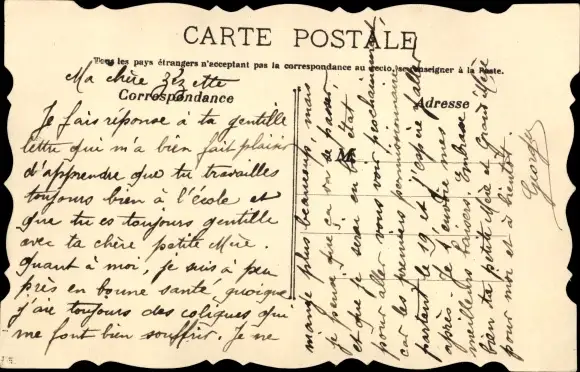 CARTE POSTALE
Tous les pays étrangers n'acceptent pas la correspondance au recto, se renseigner à la Poste.
Ma chère Zézette
Correspondance
Adresse
Je fais réponse à ta gentille
lettre qui m'a bien fait plaisir
d'apprendre que tu travailles
toujours bien à l'école et
que tu es toujours gentille
avec ta chère petite Mère.
Quant à moi, je suis à peu
près en bonne santé, quoique
j'aie toujours des coliques qui
me font bien souffrir. Je ne
mange plus beaucoup, mais
je pense que ça va se passer
et que je serai en bon état
pour aller vous voir prochainement
car les premiers permissionnaires
partent le 19 et j'espère aller
après. Je t'envoie mes
meilleurs baisers. Embrasse
bien ta petite Mère et Grand'Mère
pour moi et à bientôt.
Georges
M